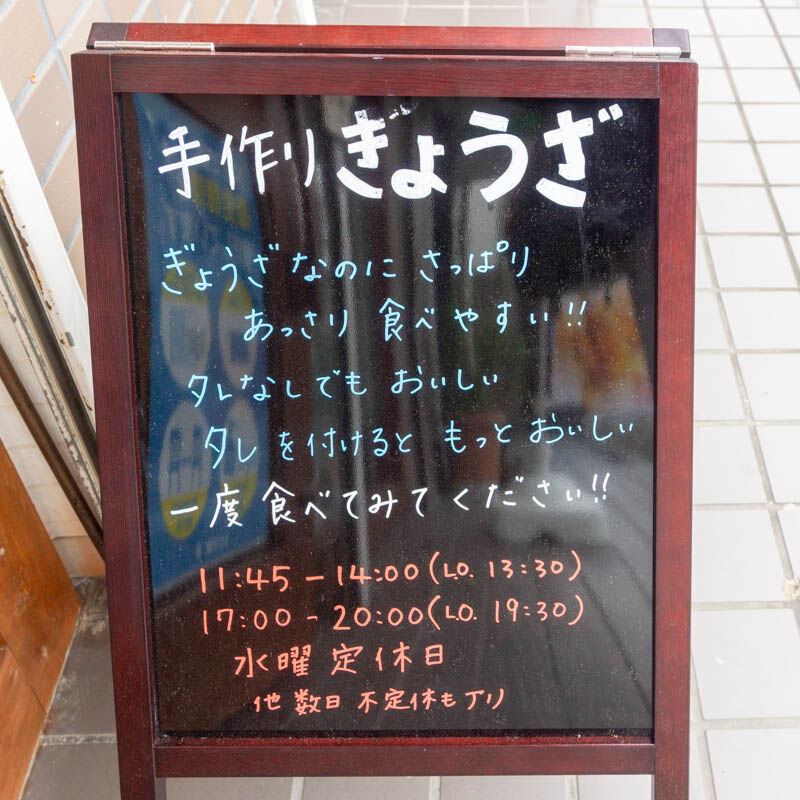 手作りぎょうざ
ぎょうざなのに さっぱり
あっさり 食べやすい!!
タレなしでも おいしい
タレを付けると もっと おいしい
一度 食べてみて ください!!
11:45 - 14:00 (L.O. 13:30)
17:00 - 20:00 (L.O. 19:30)
水曜 定休日
他 数日 不定休もアリ